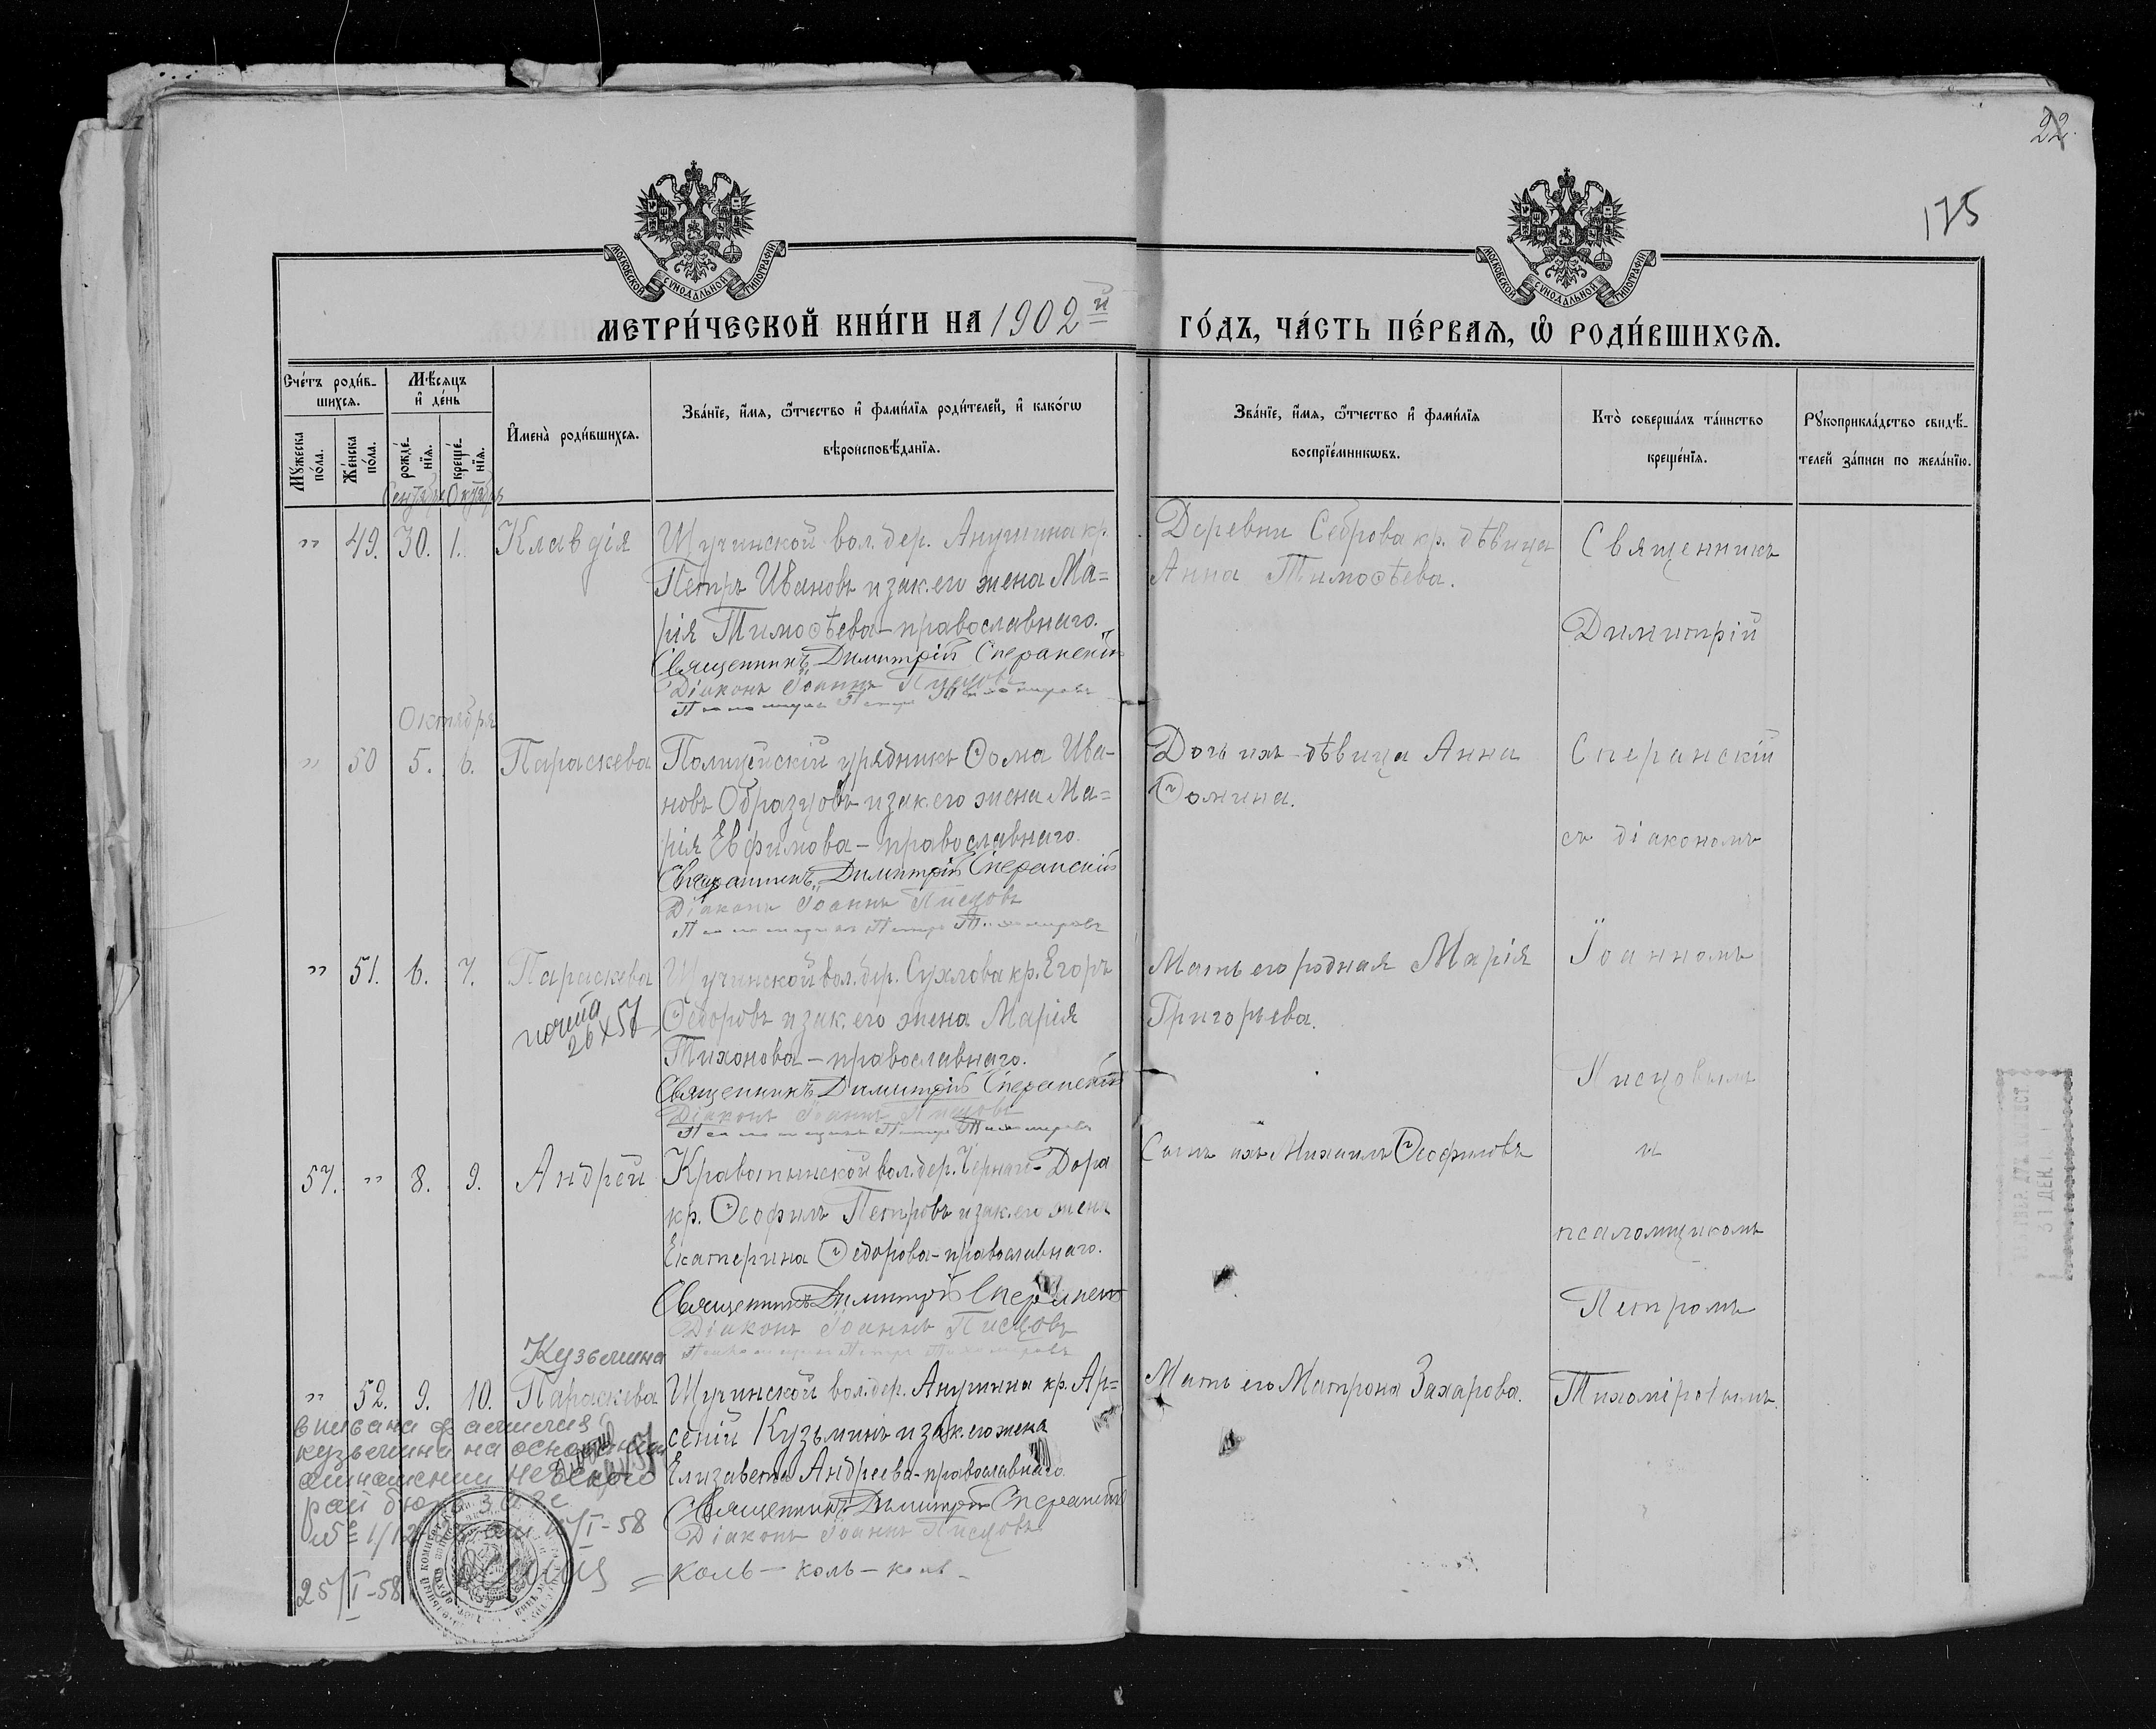 22.
175
МОСКОВСКОЙ СѴНОДАЛЬНОЙ ТИПОГРАФІИ
МОСКОВСКОЙ СѴНОДАЛЬНОЙ ТИПОГРАФІИ
МЕТРИ́ЧЕСКОЙ КНИ́ГИ НА 1902й
ГО́ДЪ, ЧА́СТЬ ПЕ́РВАѦ, Ѡ҆ РОДИ́ВШИХСѦ.
Сче́тъ роди́в-
шихсѧ.
Мѣ́сѧцъ
и҆ де́нь
Мꙋ́жеска
по́ла.
Же́нска
по́ла.
рожде́-
нїѧ.
креще́-
нїѧ.
И҆мена̀ роди́вшихсѧ.
Зва́нїе, и҆́мѧ, ѻ҆́тчество и҆ фами́лїѧ роди́телей, и҆ како́гѡ
вѣроисповѣ́данїѧ.
Зва́нїе, и҆́мѧ, ѻ҆́тчество и҆ фами́лїѧ
воспрїе́мникѡвъ.
Кто̀ соверша́лъ та́инство
креще́нїѧ.
Рꙋкоприкла́дство свидѣ́-
телей за́писи по жела́нїю.
Сентября Октября
" 49. 30. 1. Клавдія
Щучинской вол. дер. Анушина кр.
Петръ Ивановъ и зак. его жена Ма=
рія Тимоѳѣева - православнаго.
Священникъ Димитрій Сперанскій
Діаконъ Іоаннъ Писцовъ
Псаломщикъ Петръ Тихомировъ
Деревни Себрова кр. дѣвица
Анна Тимоѳѣева.
Священникъ
Димитрій
Октября
" 50 5. 6. Параскева
Полицейскій урядникъ Ѳома Ива-
новъ Образцовъ и зак. его жена Ма=
рія Евфимова - православнаго.
Священникъ Димитрій Сперанскій
Діаконъ Іоаннъ Писцовъ
Псаломщикъ Петръ Тихомировъ
Дочь ихъ - дѣвица Анна
Ѳомина.
Сперанскій
съ діакономъ
" 51. 6. 7. Параскева
26 X 57
Щучинской вол. дер. Сухлова кр. Егоръ
Ѳедоровъ и зак. его жена Марія
Тихонова - православнаго.
Священникъ Димитрій Сперанскій
Діаконъ Іоаннъ Писцовъ
Псаломщикъ Петръ Тихомировъ
Мать его родная Марія
Григорьева.
Іоанномъ
Писцовымъ
57. " 8. 9. Андрей
Кравотынской вол. дер. Черная-Дора
кр. Ѳеофилъ Петровъ и зак. его жена
Екатерина Ѳедорова - православнаго.
Священникъ Димитрій Сперанскій
Діаконъ Іоаннъ Писцовъ
Псаломщикъ Петръ Тихомировъ
Сынъ ихъ Михаилъ Ѳеофиловъ
и
псаломщикомъ
Петромъ
Кузьмина
" 52. 9. 10. Параскева
Щучинской вол. дер. Анушина кр. Ар=
сеній Кузьминъ и зак. его жена
Елизавета Андреева - православнаго.
Священникъ Димитрій Сперанскій
Діаконъ Іоаннъ Писцовъ
Мать его Матрона Захарова.
Тихоміровымъ.
вписана фамилия
кузьмина на основании
отношения Невского
рай бюро загс
25/I-58